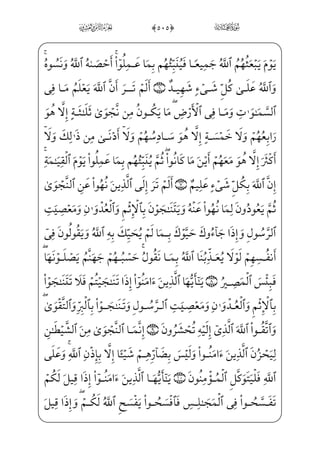 سُورَةُ المُجَادلَةِ ﴿٥٠٥﴾ الجُزْءُ الثَّامِنُ وَالعِشْرُونَ
يَوْمَ يَبْعَثُهُمُ ٱللَّهُ جَمِيعًا فَيُنَبِّئُهُم بِمَا عَمِلُوٓا۟ ۚ أَحْصَىٰهُ ٱللَّهُ وَنَسُوهُ ۚ
وَٱللَّهُ عَلَىٰ كُلِّ شَىْءٍ شَهِيدٌ ۝٦ أَلَمْ تَرَ أَنَّ ٱللَّهَ يَعْلَمُ مَا فِى
ٱلسَّمَـٰوَٰتِ وَمَا فِى ٱلْأَرْضِ ۖ مَا يَكُونُ مِن نَّجْوَىٰ ثَلَـٰثَةٍ إِلَّا هُوَ
رَابِعُهُمْ وَلَا خَمْسَةٍ إِلَّا هُوَ سَادِسُهُمْ وَلَآ أَدْنَىٰ مِن ذَٰلِكَ وَلَآ
أَكْثَرَ إِلَّا هُوَ مَعَهُمْ أَيْنَ مَا كَانُوا۟ ۖ ثُمَّ يُنَبِّئُهُم بِمَا عَمِلُوا۟ يَوْمَ ٱلْقِيَـٰمَةِ ۚ
إِنَّ ٱللَّهَ بِكُلِّ شَىْءٍ عَلِيمٌ ۝٧ أَلَمْ تَرَ إِلَى ٱلَّذِينَ نُهُوا۟ عَنِ ٱلنَّجْوَىٰ
ثُمَّ يَعُودُونَ لِمَا نُهُوا۟ عَنْهُ وَيَتَنَـٰجَوْنَ بِٱلْإِثْمِ وَٱلْعُدْوَٰنِ وَمَعْصِيَتِ
ٱلرَّسُولِ وَإِذَا جَآءُوكَ حَيَّوْكَ بِمَا لَمْ يُحَيِّكَ بِهِ ٱللَّهُ وَيَقُولُونَ فِىٓ
أَنفُسِهِمْ لَوْلَا يُعَذِّبُنَا ٱللَّهُ بِمَا نَقُولُ ۚ حَسْبُهُمْ جَهَنَّمُ يَصْلَوْنَهَا ۖ
فَبِئْسَ ٱلْمَصِيرُ ۝٨ يَـٰٓأَيُّهَا ٱلَّذِينَ ءَامَنُوٓا۟ إِذَا تَنَـٰجَيْتُمْ فَلَا تَتَنَـٰجَوْا۟
بِٱلْإِثْمِ وَٱلْعُدْوَٰنِ وَمَعْصِيَتِ ٱلرَّسُولِ وَتَنَـٰجَوْا۟ بِٱلْبِرِّ وَٱلتَّقْوَىٰ ۖ
وَٱتَّقُوا۟ ٱللَّهَ ٱلَّذِىٓ إِلَيْهِ تُحْشَرُونَ ۝٩ إِنَّمَا ٱلنَّجْوَىٰ مِنَ ٱلشَّيْطَـٰنِ
لِيَحْزُنَ ٱلَّذِينَ ءَامَنُوا۟ وَلَيْسَ بِضَآرِّهِمْ شَيْـًٔا إِلَّا بِإِذْنِ ٱللَّهِ ۚ وَعَلَى
ٱللَّهِ فَلْيَتَوَكَّلِ ٱلْمُؤْمِنُونَ ۝١٠ يَـٰٓأَيُّهَا ٱلَّذِينَ ءَامَنُوٓا۟ إِذَا قِيلَ لَكُمْ
تَفَسَّحُوا۟ فِى ٱلْمَجَـٰلِسِ فَٱفْسَحُوا۟ يَفْسَحِ ٱللَّهُ لَكُمْ ۖ وَإِذَا قِيلَ